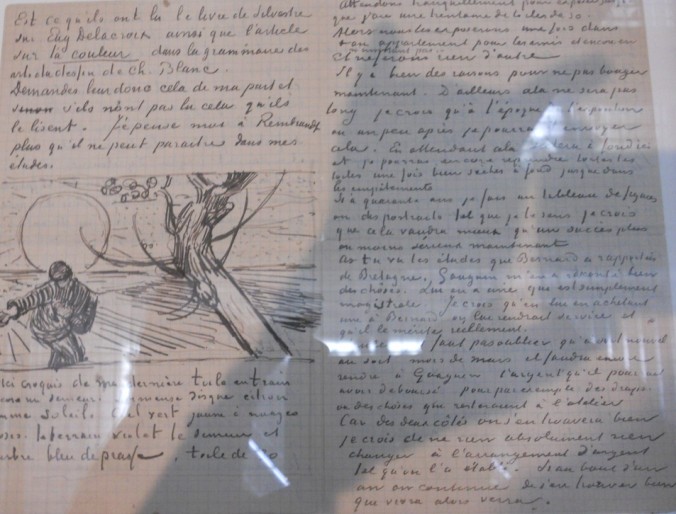 Est ce qu'ils ont lu le livre de silvestre
sur Eug Delacroix ainsi que l'article
sur la couleur dans la grammaire des
arts du dessin de Ch. Blanc.
Demandes leur donc cela de ma part et
sinon s'ils n'ont pas lu cela qu'ils
le lisent. J'pense moi à Rembrandt
plus qu'il ne peut paraitre dans mes
études.
croquis de ma dernière toile en train
encore un semeur. Immense disque citron
comme soleil. Ciel vert jaune à nuages
roses. le terrain violet le semeur et
arbre bleu de prusse, toile de 30
Attendons tranquillement pour exposer jusqu'à
que j'aie une trentaine de toiles de 30.
Alors nous les exposerons une fois dans
ton appartement pour les amis et encore en
et nferons rien d'autre
Il y a bien des raisons pour ne pas bouger
maintenant. D'ailleurs cela ne sera pas
long je crois qu'à l'époque à l'exposition
ou un peu après je pourrai envoyer
cela. En attendant cela
et je pourrai encore reprendre toutes les
toiles une fois bien sèches à fond jusque dans
les empâtements
Si à quarante ans je fais un tableau de figures
ou des portraits tel que je le sens je crois
que cela vaudra mieux qu'un succès plus
ou moins sérieux maintenant
As tu vu les études que Bernard a rapportées
de Bretagne, Gauguin m'en a raconté bien
des choses. Lui en a une qui est simplement
magistrale Je crois qu'en lui en achetant
une à Bernard on lui rendrait service et
qu'il le mérite réellement.
faut pas oublier qu'avant nouvel
an soit mois de mars il faudra encore
rendre à Gauguin l'argent qu'il pourrait
avoir déboursé pour par exemple des draps
ou des choses que resteraient à l'atelier
Car des deux côtés on s'en trouvera bien
je crois de ne rien absolument rien
changer à l'arrangement d'argent
tel qu'on l'a établi. Si au bout d'un
an on continue de s'en trouver bien
que vivra alors verra.